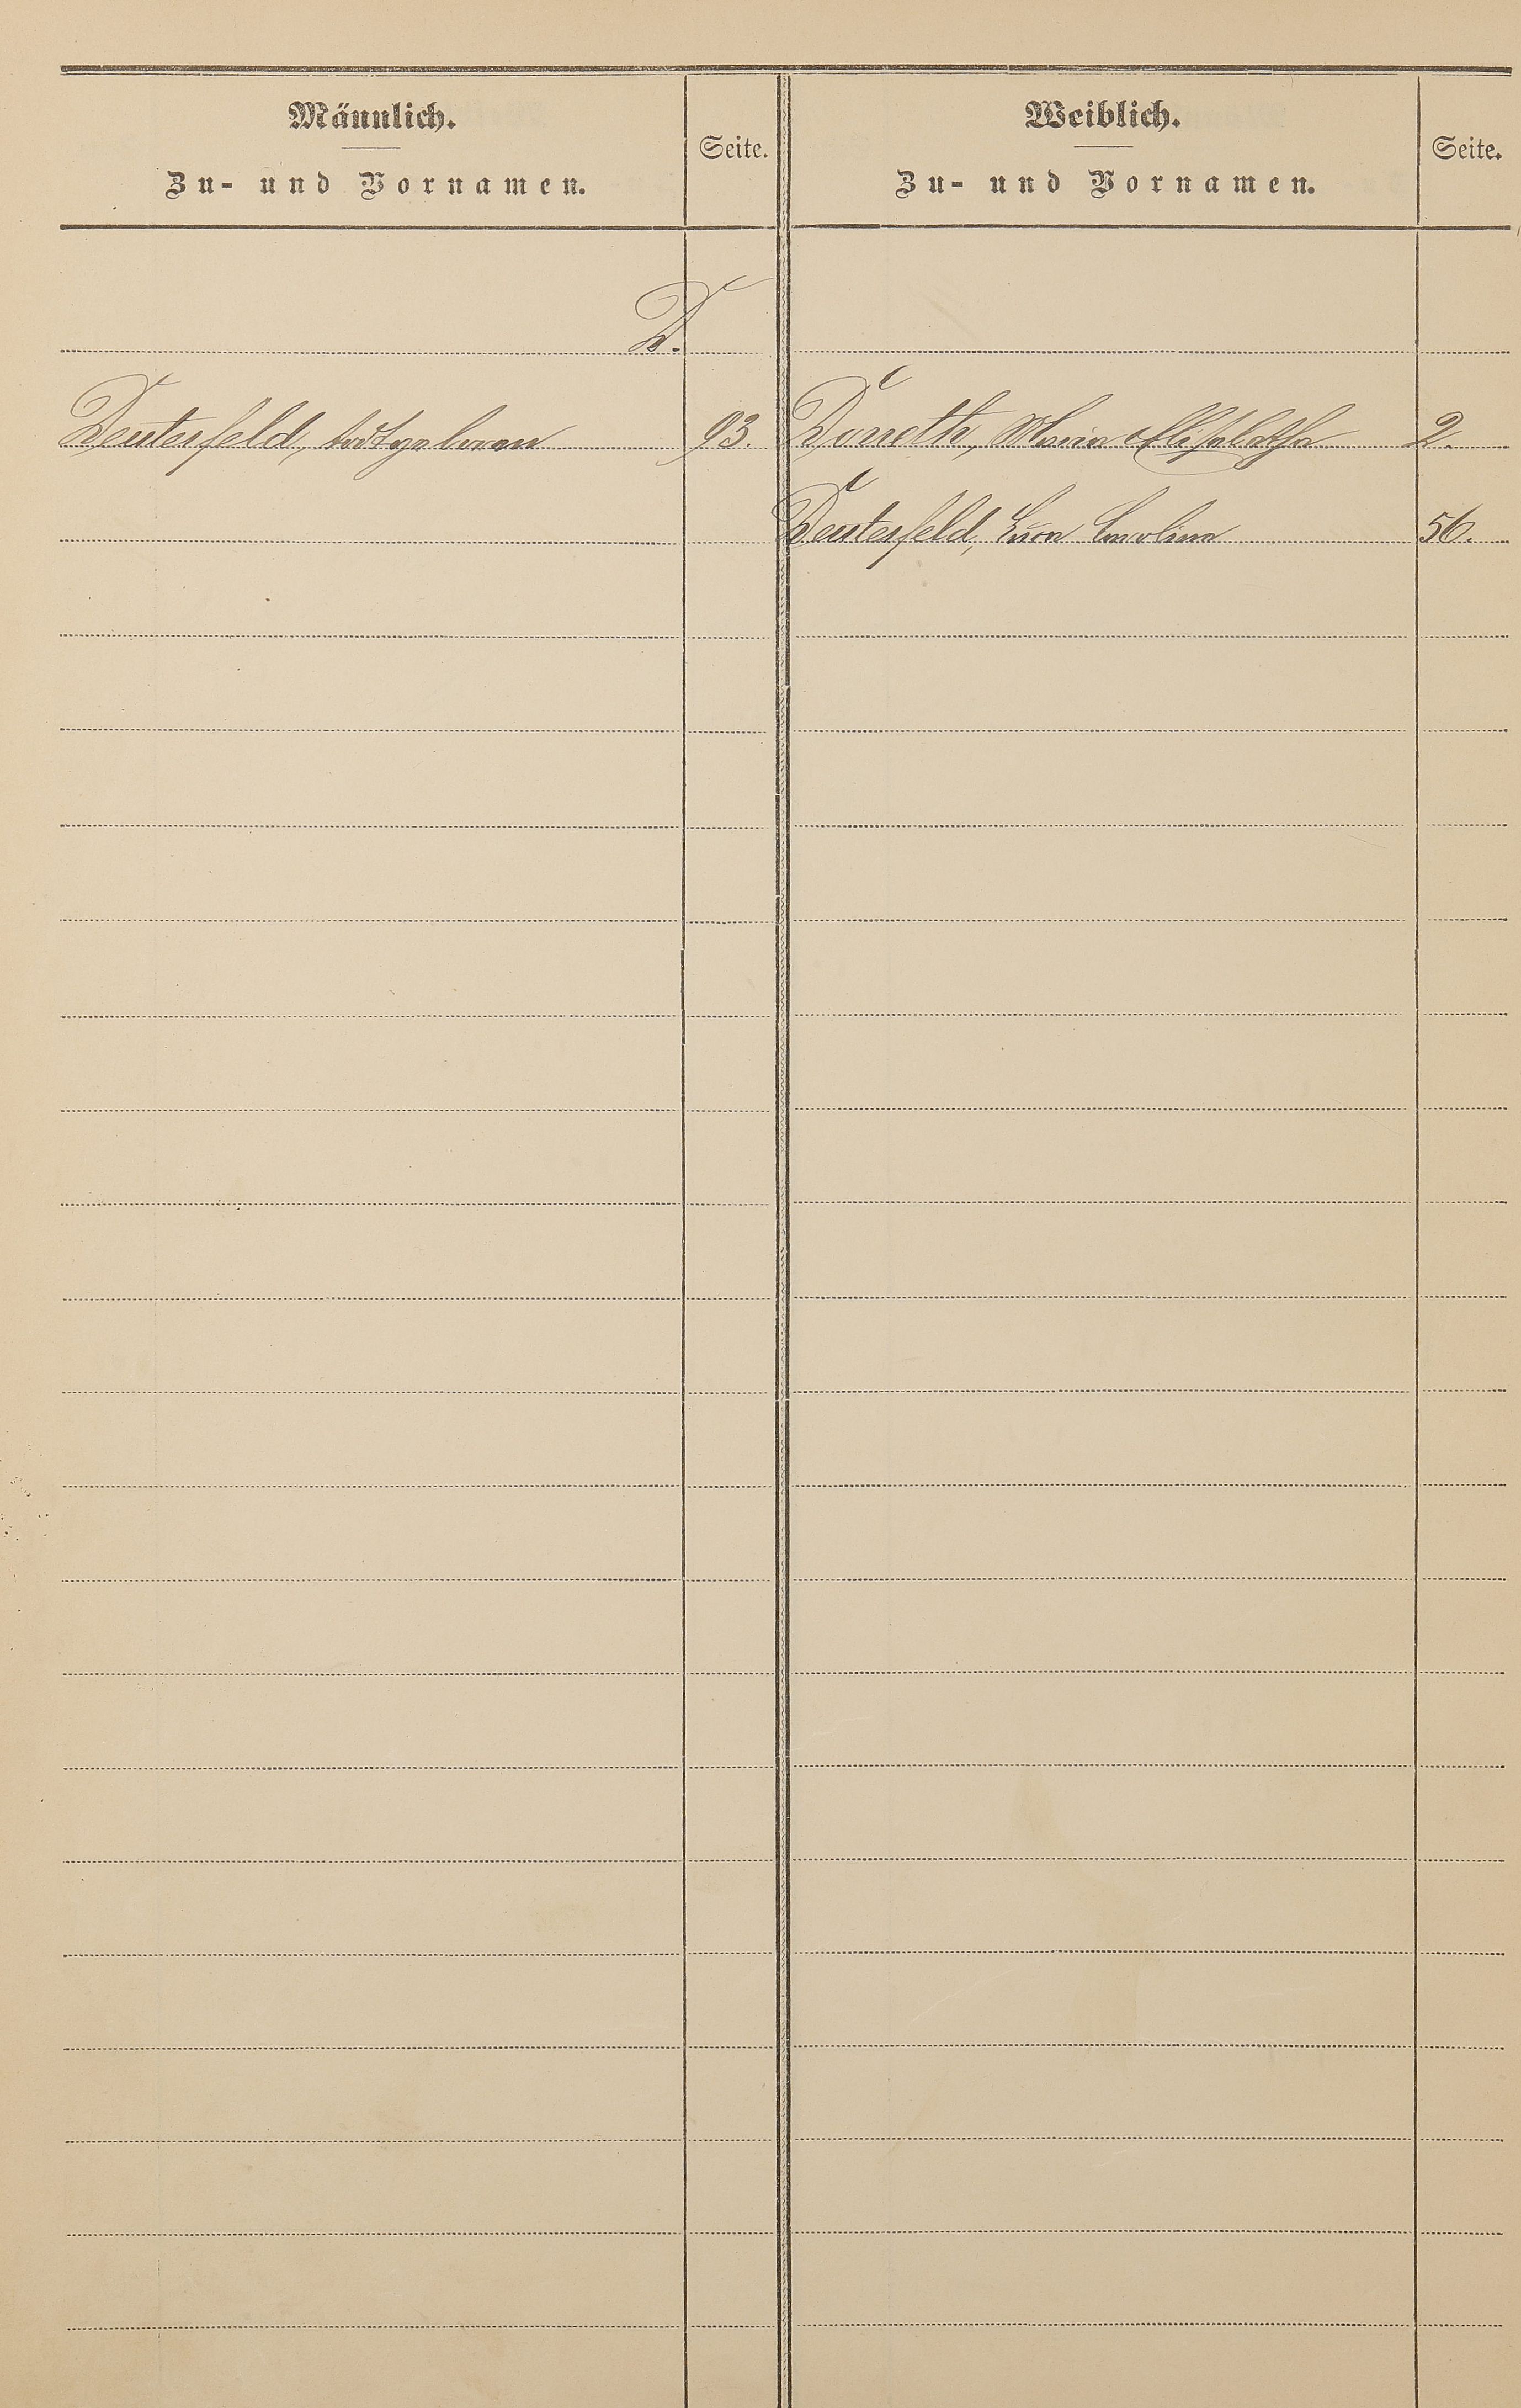 Männlich.
Zu- und Vornamen.
Seite.
Weiblich.
Zu- und Vornamen.
Seite.
D.
Deuterfeld, todtgeboren 93.
Doneth, Maria Elisabetha 2
Deuterfeld, Carolina 56.